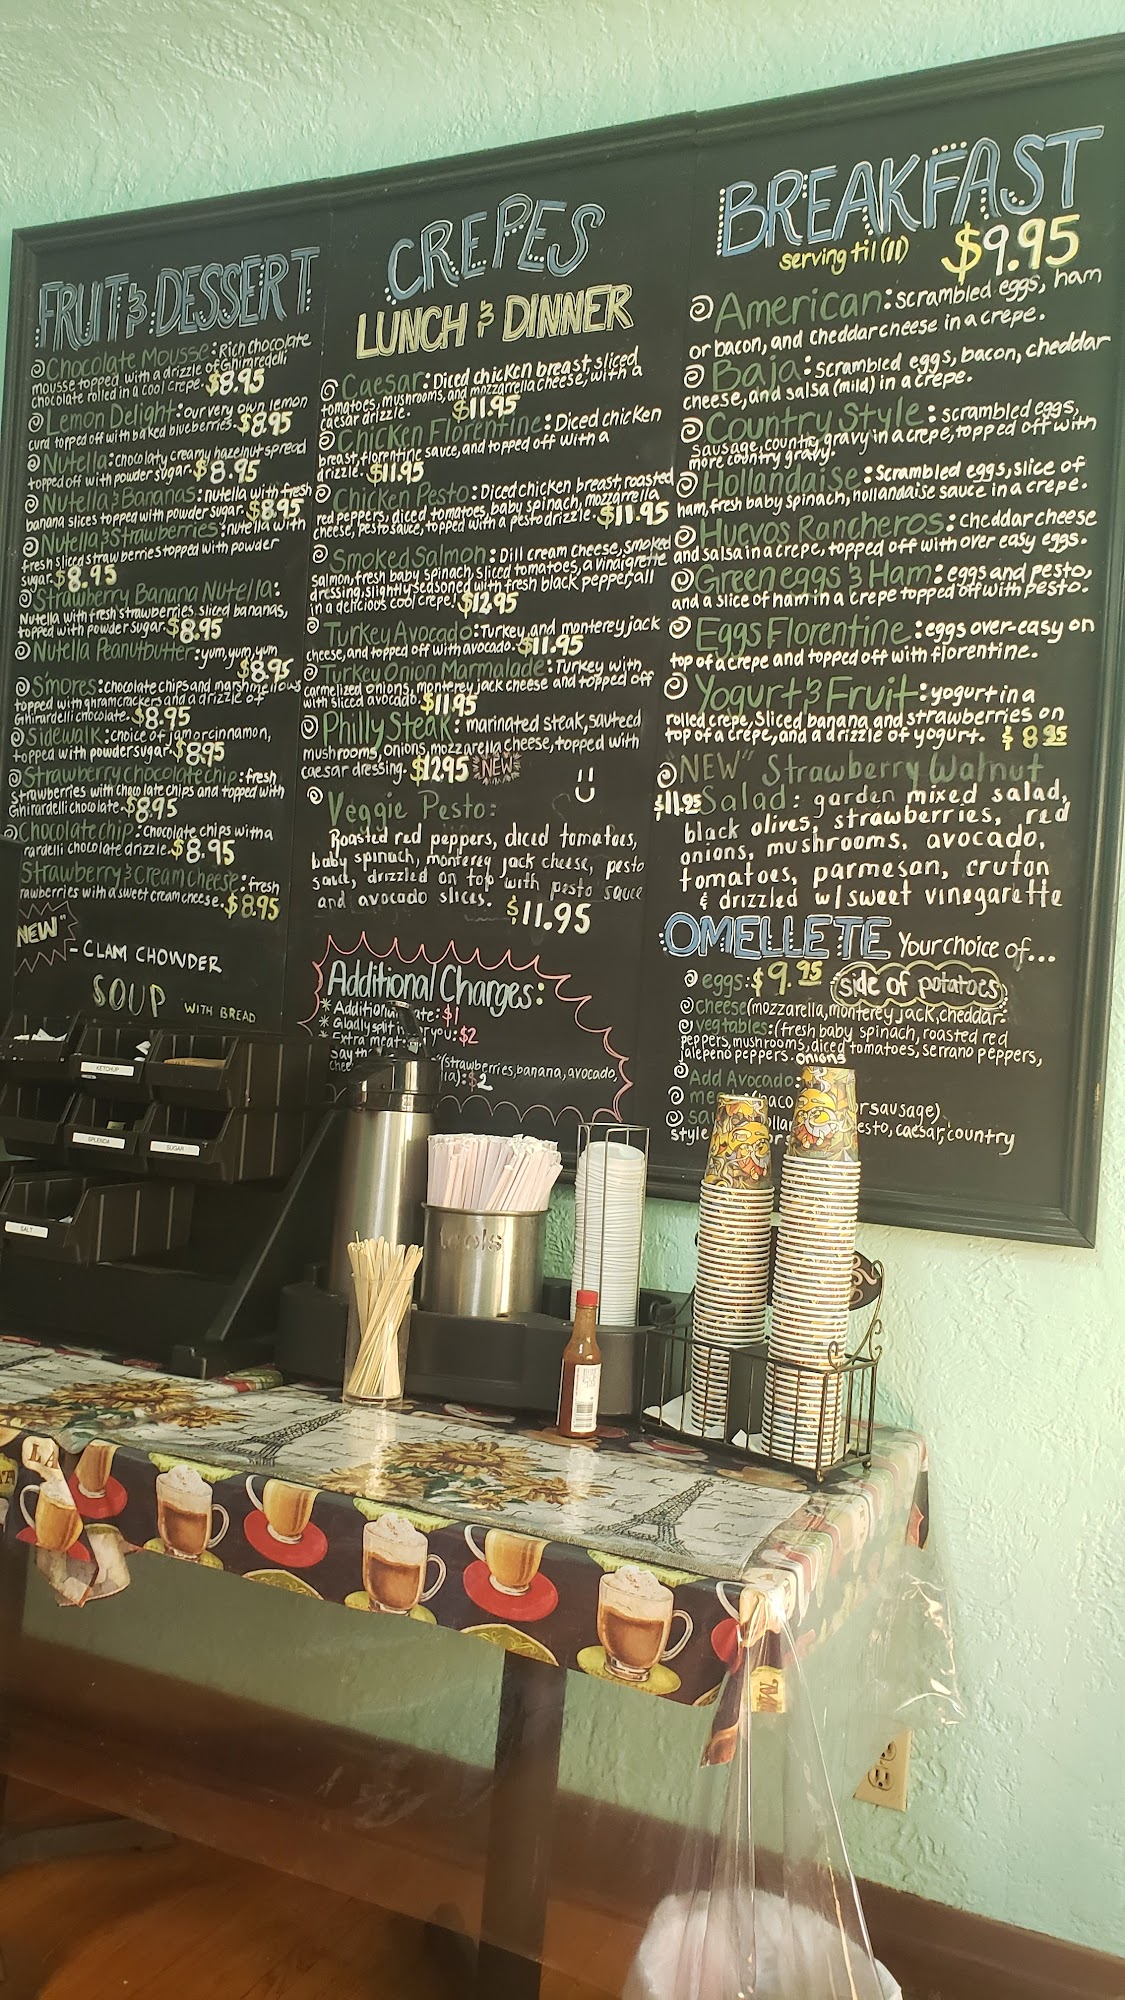 FRUIT & DESSERT
Chocolate Mousse: Rich chocolate
mousse topped with a drizzle of Ghirardelli
chocolate rolled in a cool crepe. $8.95
Lemon Delight: our very own lemon
curd topped off with baked blueberries. $8.95
Nutella: chocolaty creamy hazelnut spread
topped off with powder sugar. $8.95
Nutella & Bananas: nutella with fresh
banana slices topped with powder sugar. $8.95
Nutella & Strawberries: nutella with
fresh sliced strawberries topped with powder
sugar. $8.95
Strawberry Banana Nutella:
Nutella with fresh strawberries, sliced bananas,
topped with powder sugar. $8.95
Nutella Peanutbutter: yum, yum, yum
$8.95
S'mores: chocolate chips and marshmellows
topped with ghramcrackers and a drizzle of
Ghirardelli chocolate. $8.95
Sidewalk: choice of jam or cinnamon,
topped with powder sugar. $8.95
Strawberry chocolate chip: fresh
strawberries with chocolate chips and topped with
Ghirardelli chocolate. $8.95
Chocolate chip: chocolate chips with a
rardelli chocolate drizzle. $8.95
Strawberry & Cream Cheese: fresh
rawberries with a sweet cream cheese. $8.95
"NEW"
- CLAM CHOWDER
SOUP WITH BREAD
CREPES
LUNCH & DINNER
Caesar: Diced chicken breast, sliced
tomatoes, mushrooms, and mozzarella cheese, with a
caesar drizzle. $11.95
Chicken Florentine: Diced chicken
breast, florentine sauce, and topped off with a
drizzle. $11.95
Chicken Pesto: Diced chicken breast, roasted
red peppers, diced tomatoes, baby spinach, mozzarella
cheese, pesto sauce, topped with a pesto drizzle. $11.95
Smoked Salmon: Dill cream cheese, smoked
salmon, fresh baby spinach, sliced tomatoes, a vinaigrette
dressing, slightly seasoned with fresh black pepper, all
in a delicious cool crepe. $12.95
Turkey Avocado: Turkey, and monterey jack
cheese, and topped off with avocado. $11.95
Turkey Onion Marmalade: Turkey with
carmelized onions, monterey jack cheese and topped off
with sliced avocado. $11.95
Philly Steak: marinated steak, sauteed
mushrooms, onions, mozzarella cheese, topped with
caesar dressing. $12.95 NEW
Veggie Pesto:
Roasted red peppers, diced tomatoes,
baby spinach, monterey jack cheese, pesto
sauce, drizzled on top with pesto sauce
and avocado slices. $11.95
Additional Charges:
* Additional ate: $1
* Gladly split it for you: $2
* Extra meat:
Say th
chee (strawberries, banana, avocado,
la): $2
BREAKFAST
serving til (11) $9.95
American: scrambled eggs, ham
or bacon, and cheddar cheese in a crepe.
Baja: scrambled eggs, bacon, cheddar
cheese, and salsa (mild) in a crepe.
Country Style: scrambled eggs,
sausage, country gravy in a crepe, topped off with
more country gravy.
Hollandaise: Scrambled eggs, slice of
ham, fresh baby spinach, hollandaise sauce in a crepe.
Huevos Rancheros: cheddar cheese
and salsa in a crepe, topped off with over easy eggs.
Green eggs & Ham: eggs and pesto,
and a slice of ham in a crepe topped off with pesto.
Eggs Florentine: eggs over-easy on
top of a crepe and topped off with florentine.
Yogurt & Fruit: yogurt in a
rolled crepe, Sliced banana and strawberries on
top of a crepe, and a drizzle of yogurt. $8.95
"NEW" Strawberry Walnut
$11.95 Salad: garden mixed salad,
black olives, strawberries, red
onions, mushrooms, avocado,
tomatoes, parmesan, cruton
& drizzled w/ sweet vinegarette
OMELLETE Your choice of...
eggs: $9.95 side of potatoes
Cheese (mozzarella, monterey jack, cheddar.
vegtables: (fresh baby spinach, roasted red
peppers, mushrooms, diced tomatoes, serrano peppers,
jalepeno peppers. onions
Add Avocado:
me (baco or sausage)
sau ollan esto, caesar, country
style
KETCHUP
SPLENDA
SUGAR
SALT
tools
LA